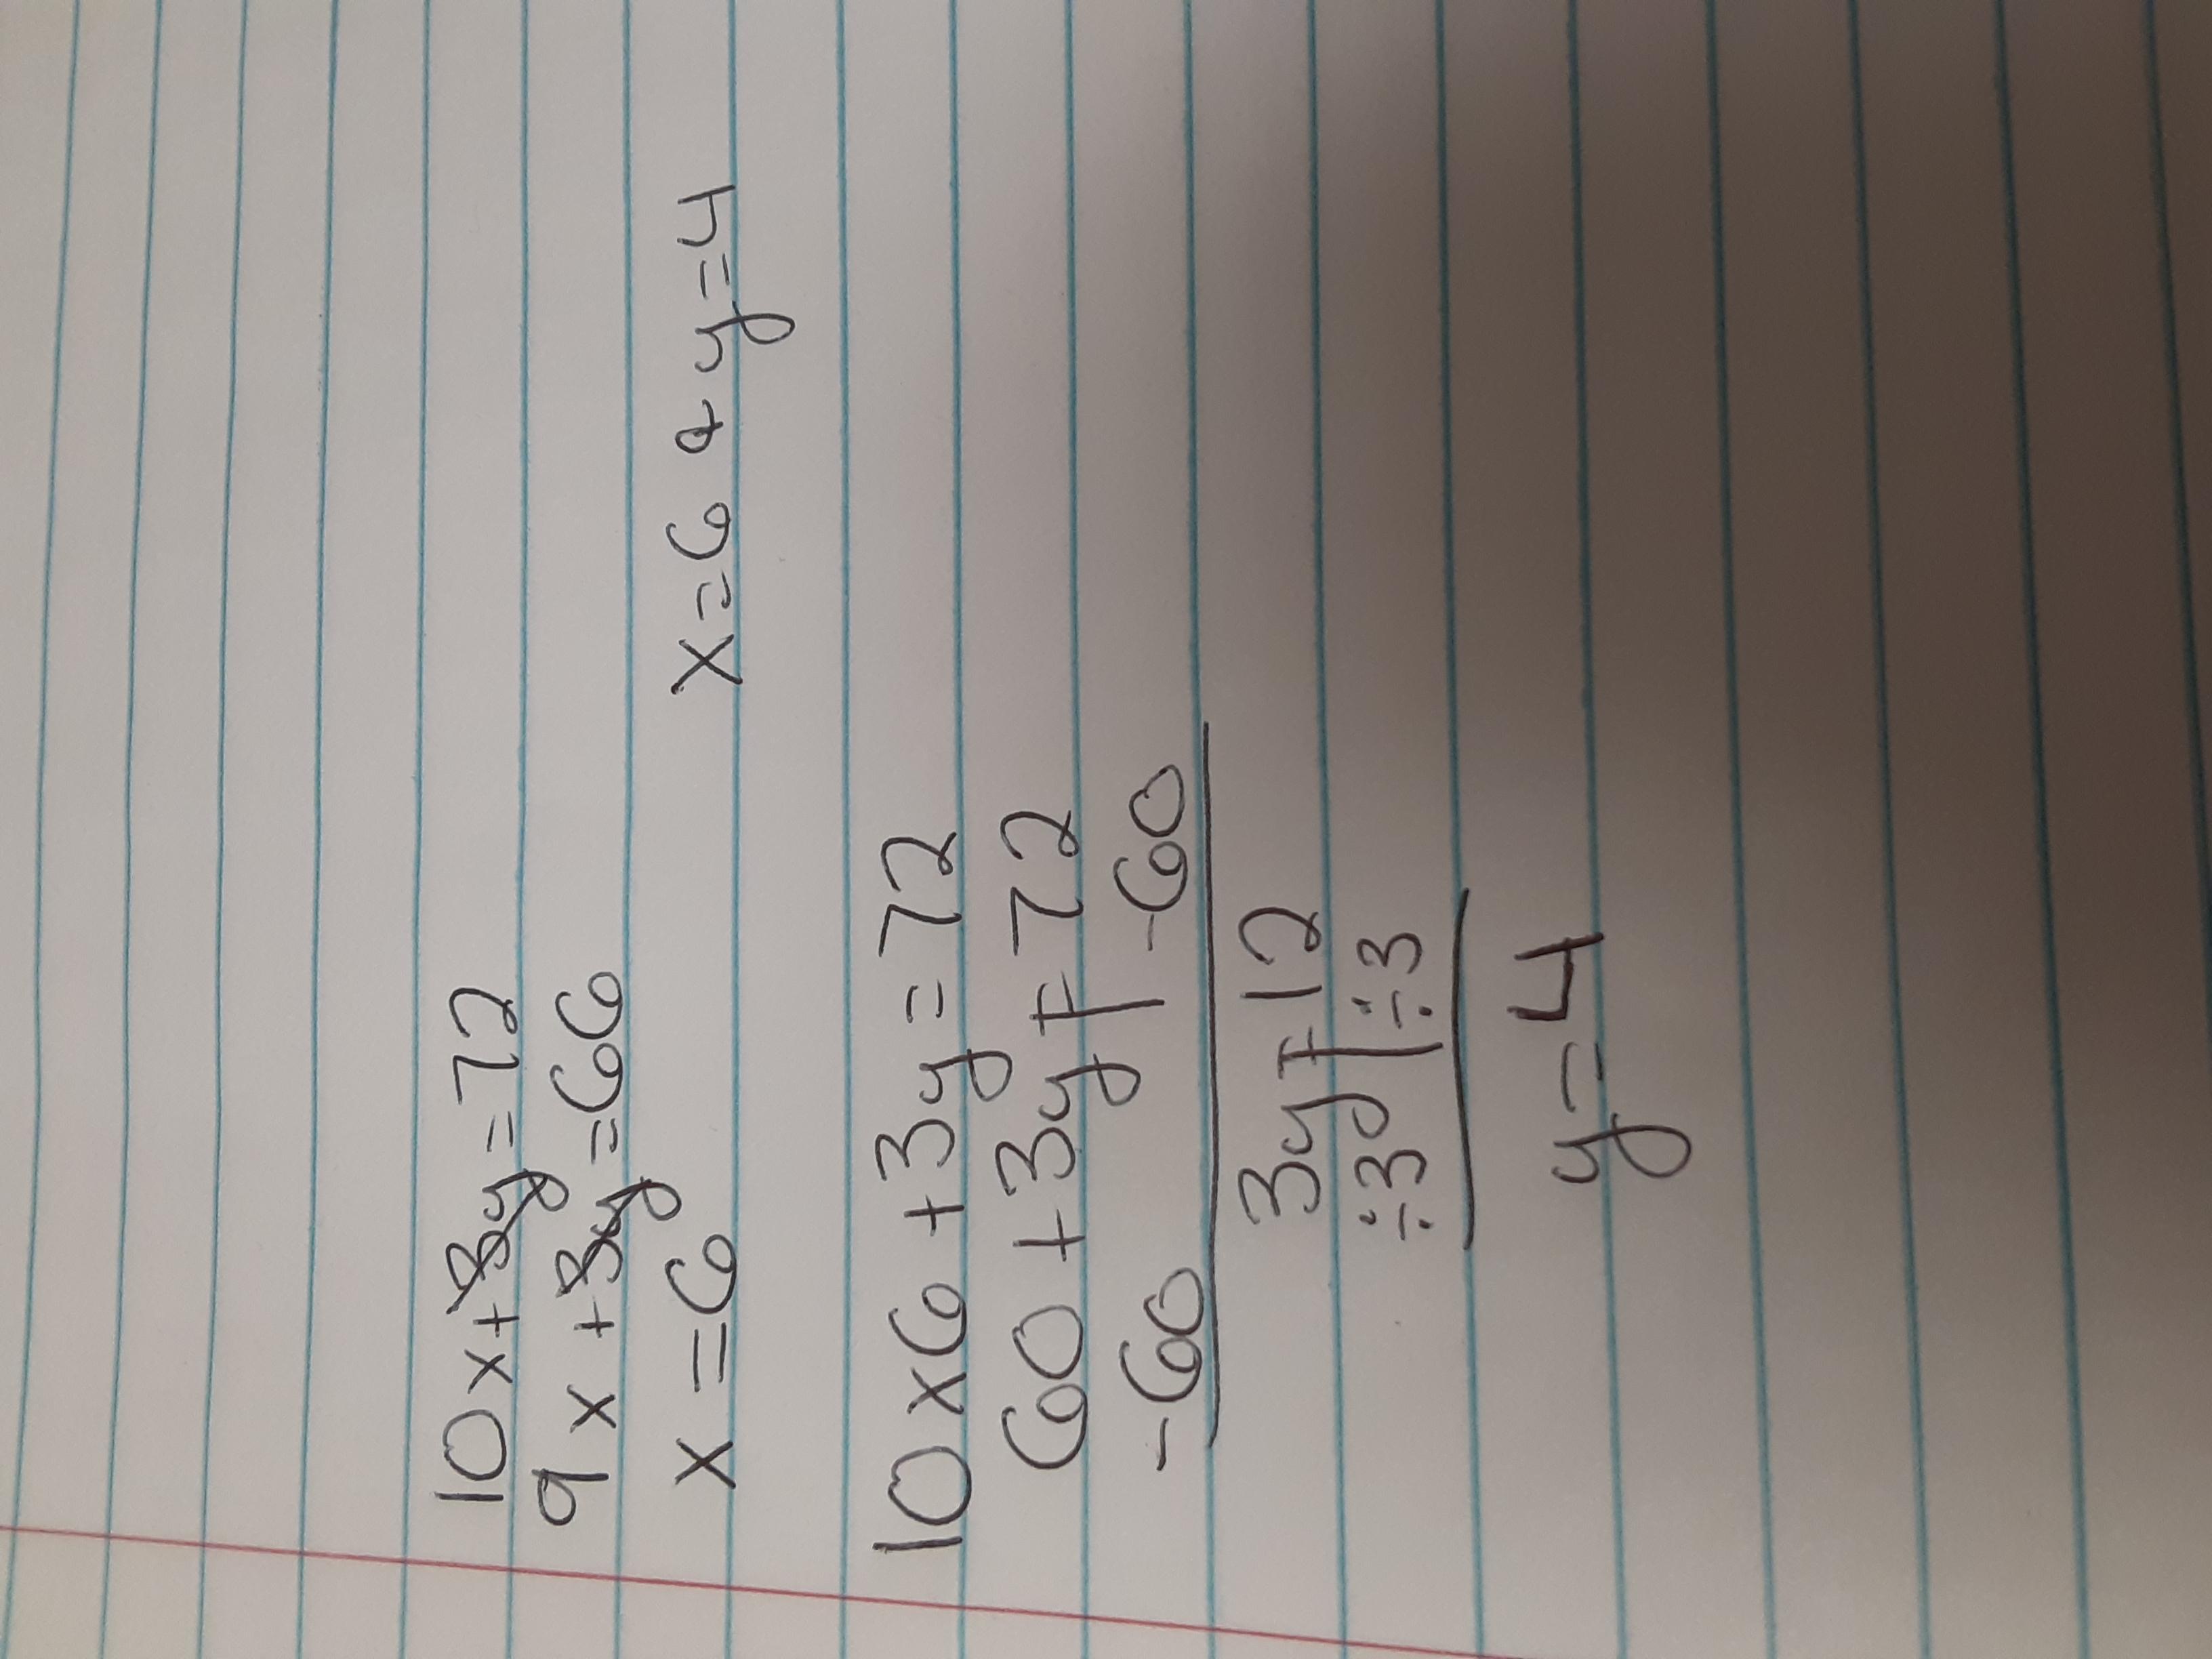 10x+3y=72
9x+3y=66
x=6
x=6 & y=4
10x6+3y=72
60+3y=72
-60 -60
3y=12
÷3 ÷3
y=4